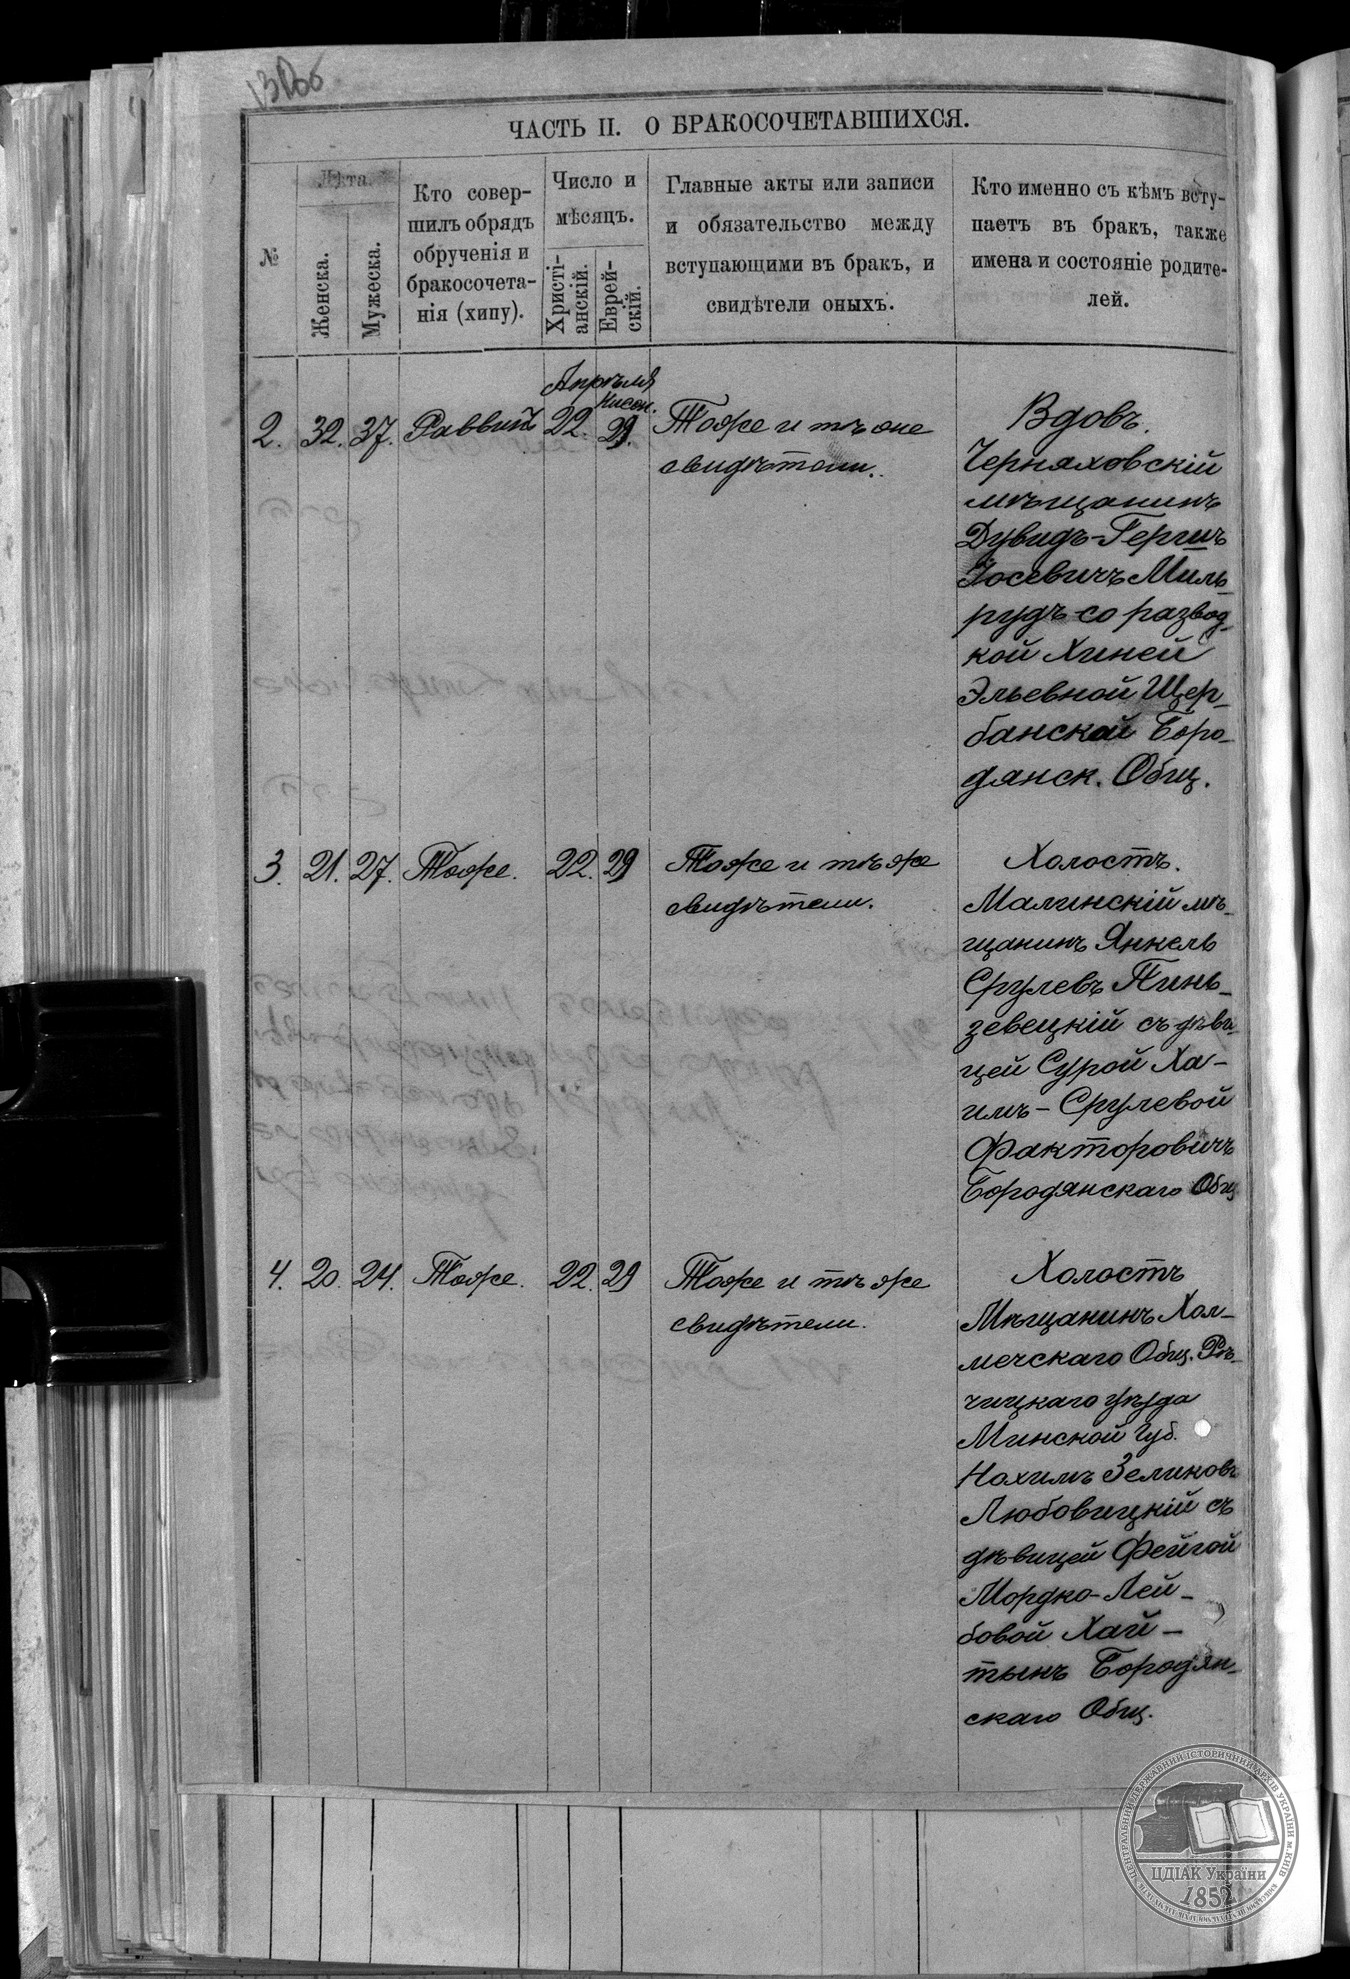 ЧАСТЬ II. О БРАКОСОЧЕТАВШИХСЯ.
№
Лѣта.
Женска.
Мужеска.
Кто совер-
шилъ обрядъ
обрученія и
бракосочета-
нія (хипу).
Число и
мѣсяцъ.
Христі-
анскій.
Еврей-
скій.
Главные акты или записи
и обязательство между
вступающими въ бракъ, и
свидѣтели оныхъ.
Кто именно съ кѣмъ всту-
паетъ въ бракъ, также
имена и состояніе родите-
лей.
Апрѣля
Нисон.
2. 32. 37. Раввинъ 22. 29. Тоже и тѣ же
свидѣтели.
Вдовъ.
Черняховскій
мѣщанинъ
Дувидъ-Гершъ
Іосевичъ Миль-
рудъ со развод-
кой Хиней
Эльевной Щер-
банской Боро-
дянск. Общ.
3. 21. 27. Тоже. 22. 29 Тоже и тѣ же
свидѣтели.
Холостъ.
Малинскій мѣ-
щанинъ Янкель
Срулевъ Пинь-
зевецкій съ дѣви-
цей Сурой Ха-
имъ-Срулевой
Факторовичъ
Бородянскаго Общ
4. 20. 24. Тоже. 22. 29 Тоже и тѣ же
свидѣтели.
Холостъ
Мѣщанинъ Хол-
мечскаго Общ. Рѣ-
чицкаго уѣзда
Минской Губ.
Нохимъ Зеликовъ
Любовицкій съ
дѣвицей Фейгой
Мордко-Лей-
бовой Хай-
тынъ Бородян-
скаго Общ.
ЦДІАК України
1852
ЦЕНТРАЛЬНИЙ ДЕРЖАВНИЙ ІСТОРИЧНИЙ АРХІВ УКРАЇНИ м.КИЇВ